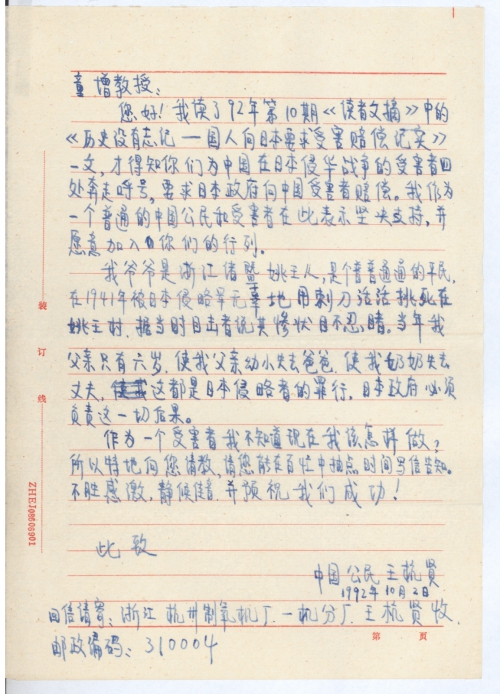 童增教授：
您好！我读了92年第10期《读者文摘》中的
《历史没有忘记——国人向日本要求受害赔偿记实》
一文，才得知你们为中国在日本侵华战争的受害者四
处奔走呼号，要求日本政府向中国受害者赔偿。我作为
一个普通的中国公民和受害者在此表示坚决支持，并
愿意加入你们的行列。
我爷爷是浙江诸暨姚王人，是个普普通通的平民，
在1941年被日本侵略军无辜地用刺刀活活挑死在
姚王村。据当时目击者说其惨状目不忍睹。当年我
父亲只有六岁，使我父亲幼小失去爸爸，使我奶奶失去
丈夫，这都是日本侵略者的罪行，日本政府必须
负责这一切后果。
作为一个受害者我不知道现在我该怎样做？
所以特地向您请教，请您能在百忙中抽点时间写信告知。
不胜感激，静候佳音，并预祝我们成功！
此致
中国公民 王杭贤
1992年10月2日
回信请寄：浙江杭州制氧机厂一机分厂 王杭贤收
邮政编码：310004
装
订
线
ZHEJ08606901
第 页